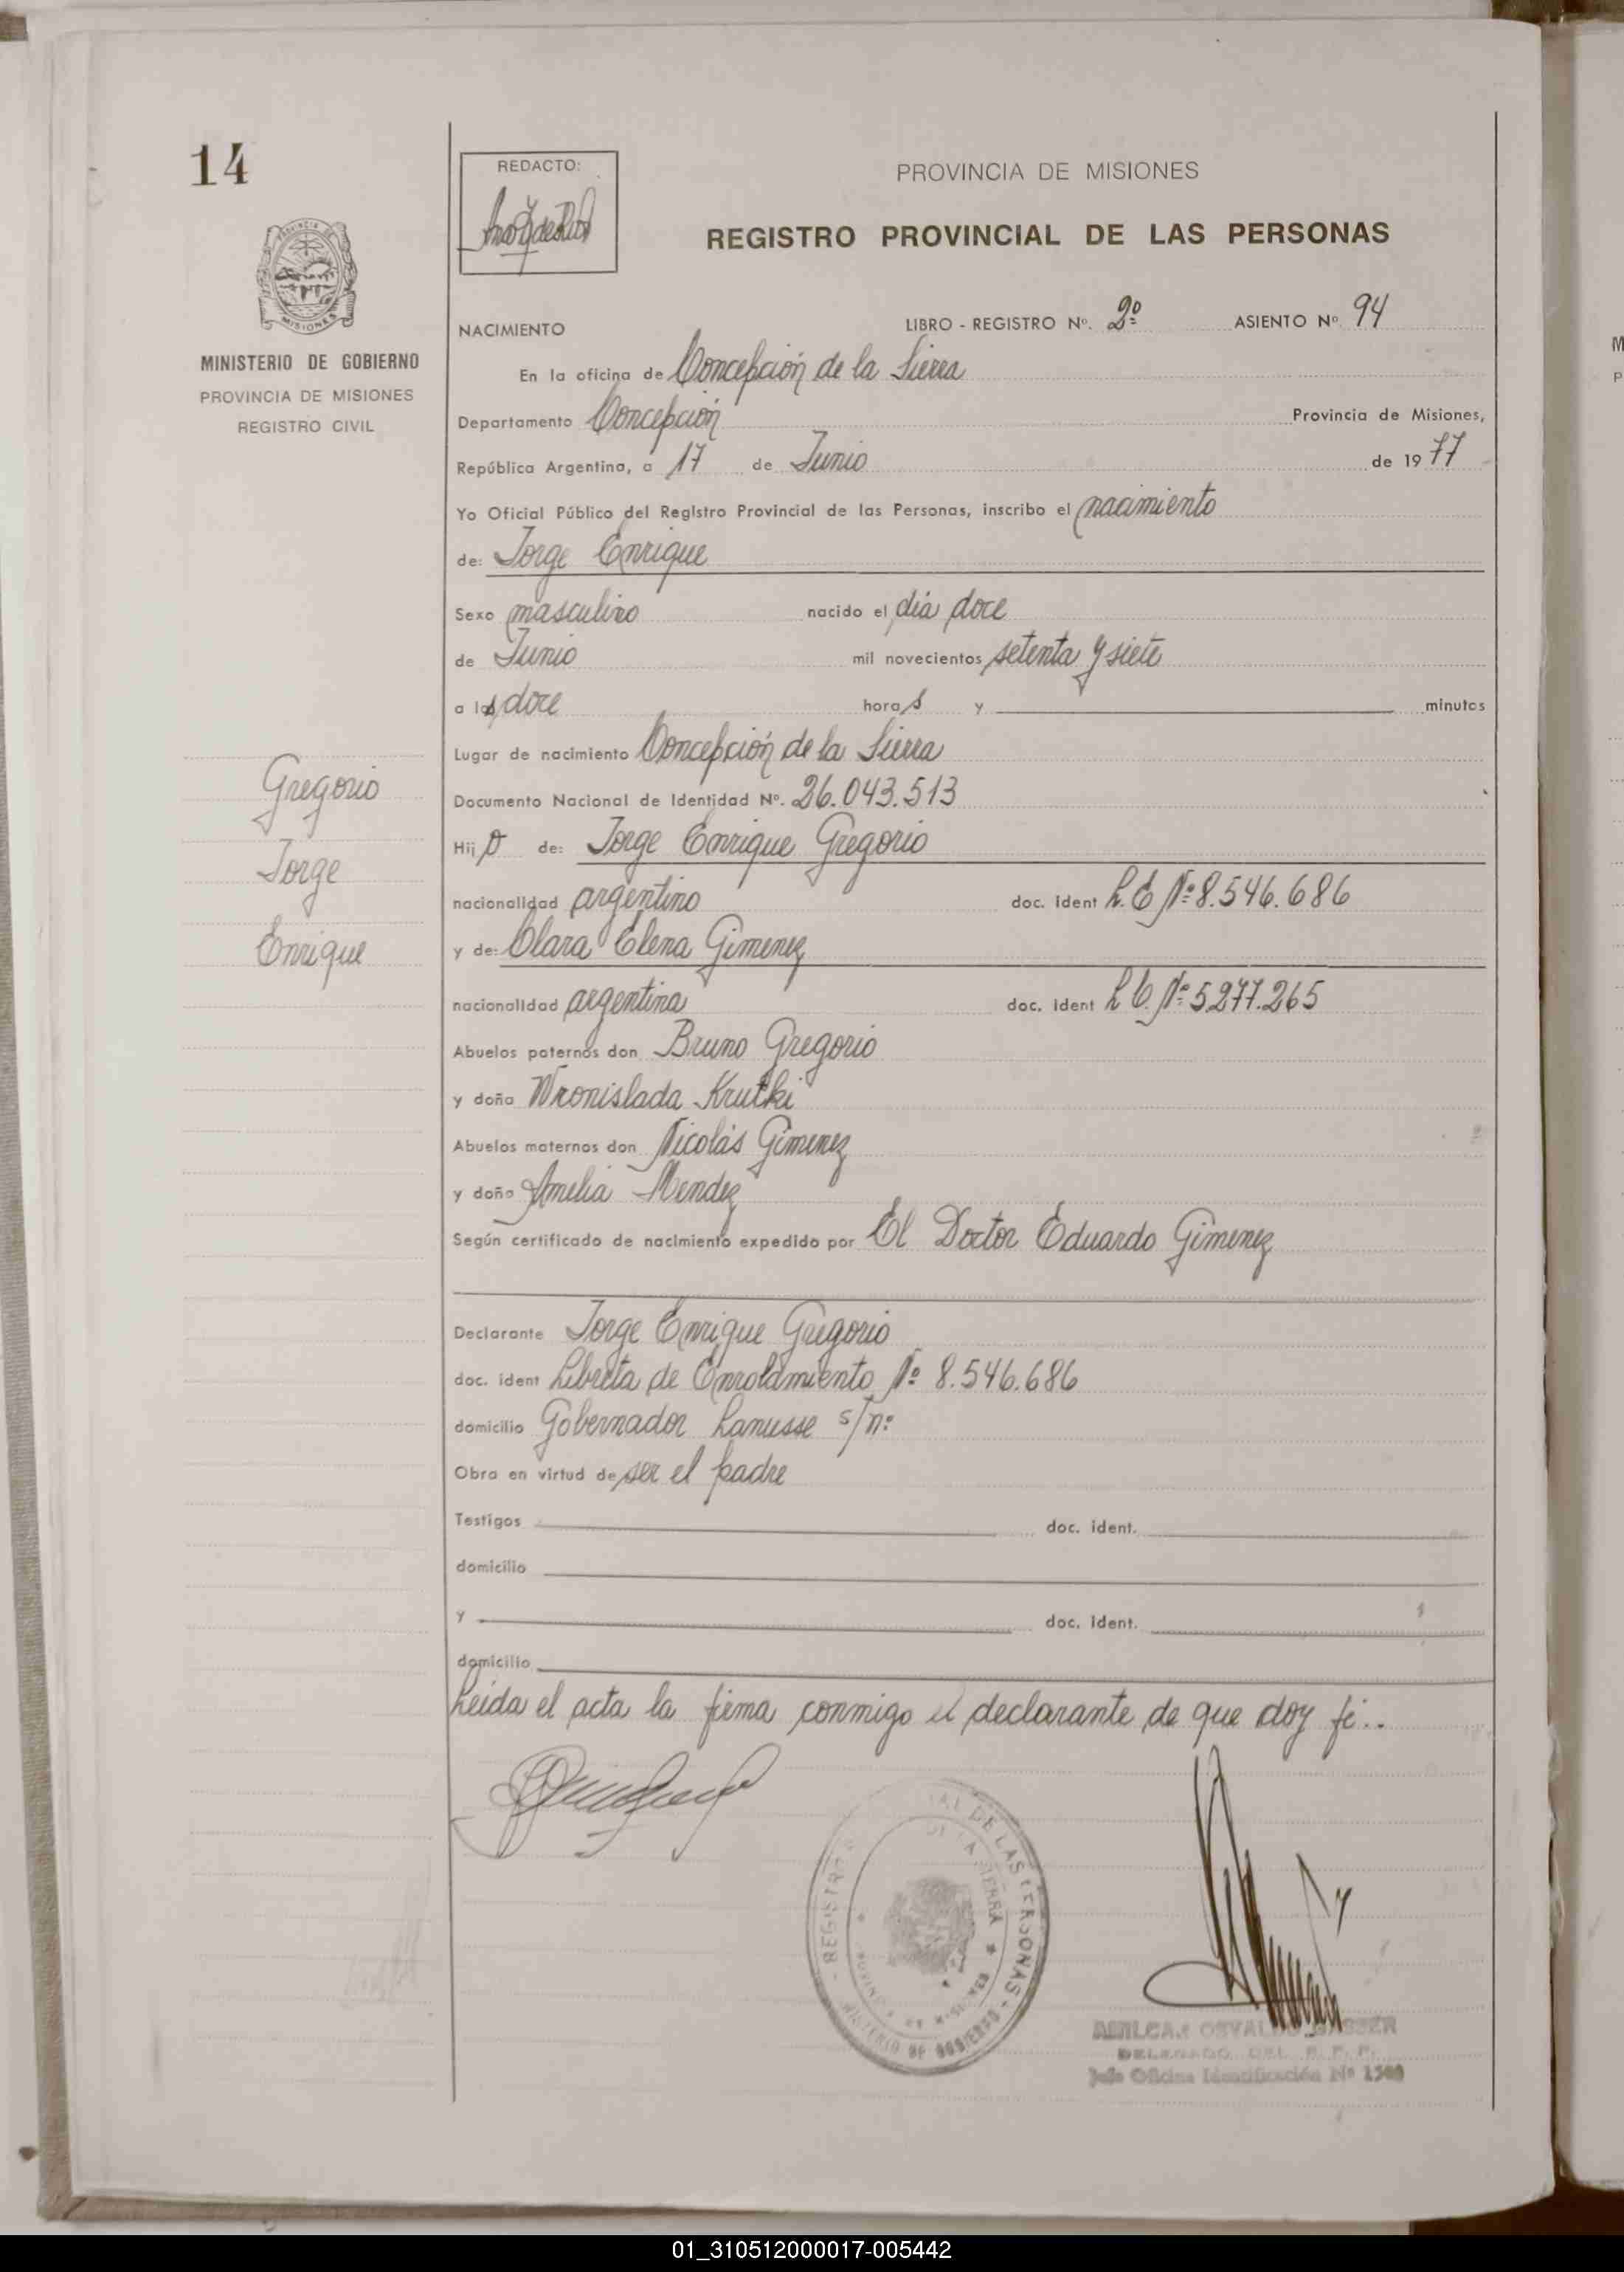 14
REDACTO:
PROVINCIA DE MISIONES
REGISTRO PROVINCIAL DE LAS PERSONAS
MISIONES
MINISTERIO DE GOBIERNO
PROVINCIA DE MISIONES
REGISTRO CIVIL
NACIMIENTO LIBRO - REGISTRO Nº. 2º ASIENTO Nº 94
En la oficina de Concepción de la Sierra
Departamento Concepción Provincia de Misiones,
República Argentina, a 17 de Junio de 1977
Yo Oficial Público del Registro Provincial de las Personas, inscribo el nacimiento
de: Jorge Enrique
Sexo masculino nacido el día doce
de Junio mil novecientos setenta y siete
a las doce horas y minutos
Lugar de nacimiento Concepción de la Sierra
Documento Nacional de Identidad Nº. 26.043.513
Hijo de: Jorge Enrique Gregorio
nacionalidad argentino doc. ident L.E Nº 8.546.686
y de: Clara Elena Gimenez
nacionalidad argentina doc. ident L C. Nº 5.277.265
Abuelos paternos don Bruno Gregorio
y doña Wronislada Krutki
Abuelos maternos don Nicolás Gimenez
y doña Amelia Mendez
Según certificado de nacimiento expedido por El Doctor Eduardo Gimenez
Declarante Jorge Enrique Gregorio
doc. ident Libreta de Enrolamiento Nº 8.546.686
domicilio Gobernador Lanusse s/nº
Obra en virtud de ser el padre
Testigos doc. ident.
domicilio
y doc. ident.
domicilio
Leída el acta la firma conmigo el declarante de que doy fé..
Gregorio
Jorge
Enrique
REGISTRO DE LAS PERSONAS
MINISTERIO DE GOBIERNO
DE LA SIERRA
DE MISIONES
AMILCAR OSVALDO GASSER
DELEGADO DEL R. P. P.
Jefe Oficina Identificación Nº 1500
01_310512000017-005442